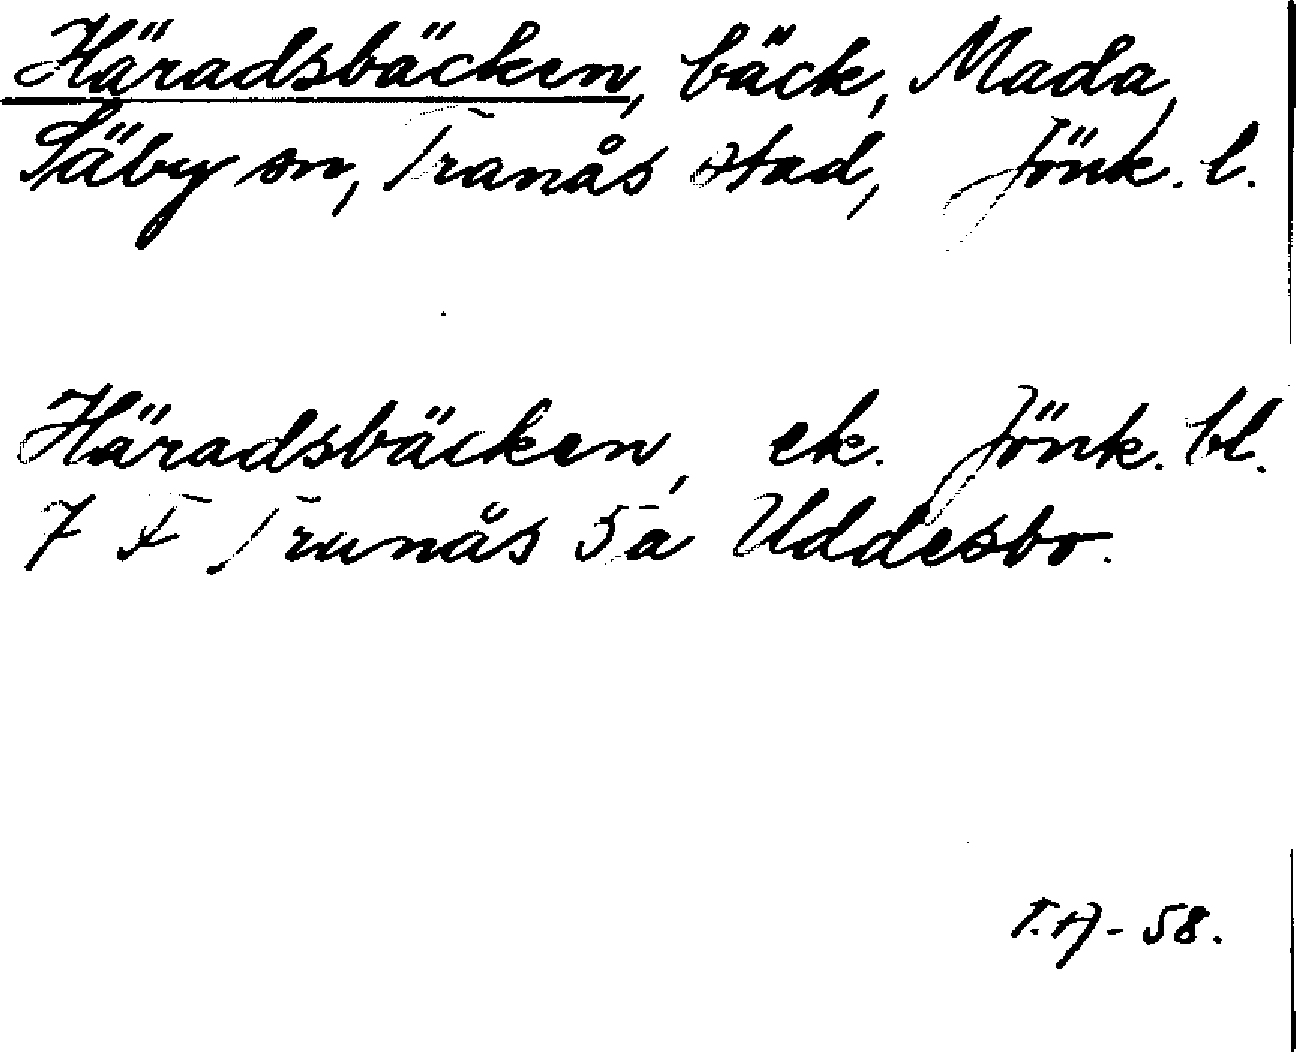 Häradsbäcken, bäck, Mada,
Säby sn, Tranås stad, Jönk. l.
Häradsbäcken, ek. Jönk. bl.
7 F Tranås 5a Uddesbo.
T.A - 58.